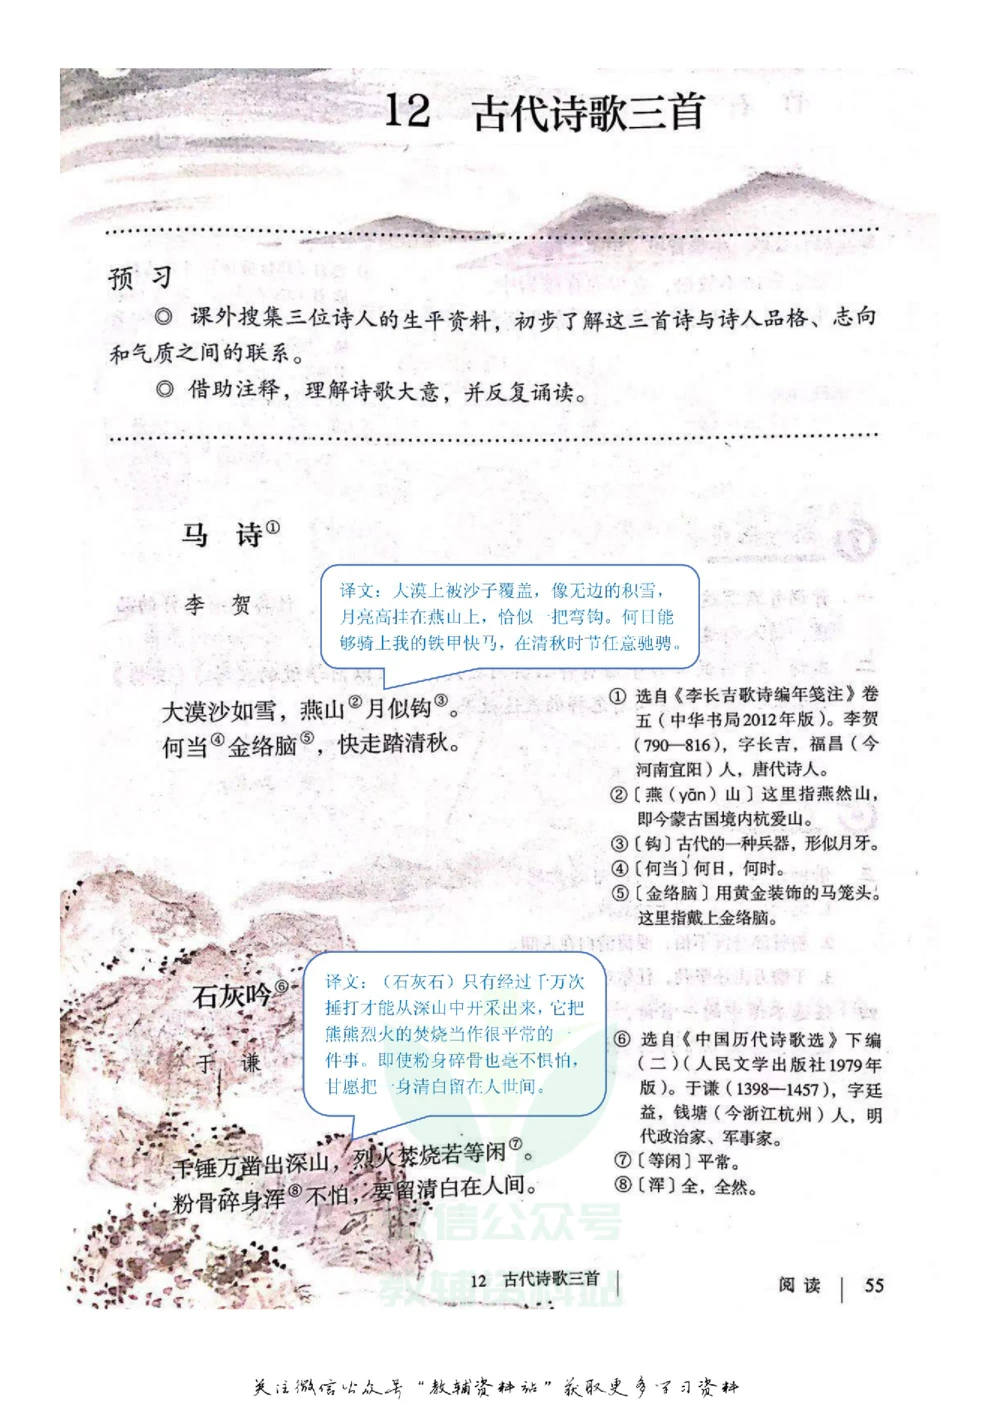 12 古代诗歌三首
预 习
◎ 课外搜集三位诗人的生平资料，初步了解这三首诗与诗人品格、志向
和气质之间的联系。
◎ 借助注释，理解诗歌大意，并反复诵读。
马 诗①
李 贺
译文：大漠上被沙子覆盖，像无边的积雪，
月亮高挂在燕山上，恰似一把弯钩。何日能
够骑上我的铁甲快马，在清秋时节任意驰骋。
大漠沙如雪，燕山②月似钩③。
何当④金络脑⑤，快走踏清秋。
① 选自《李长吉歌诗编年笺注》卷
五（中华书局2012年版）。李贺
（790—816），字长吉，福昌（今
河南宜阳）人，唐代诗人。
②〔燕（yān）山〕这里指燕然山，
即今蒙古国境内杭爱山。
③〔钩〕古代的一种兵器，形似月牙。
④〔何当〕何日，何时。
⑤〔金络脑〕用黄金装饰的马笼头。
这里指戴上金络脑。
石灰吟⑥
于 谦
译文：（石灰石）只有经过千万次
捶打才能从深山中开采出来，它把
熊熊烈火的焚烧当作很平常的一
件事。即使粉身碎骨也毫不惧怕，
甘愿把一身清白留在人世间。
千锤万凿出深山，烈火焚烧若等闲⑦。
粉骨碎身浑⑧不怕，要留清白在人间。
⑥ 选自《中国历代诗歌选》下编
（二）（人民文学出版社1979年
版）。于谦（1398—1457），字廷
益，钱塘（今浙江杭州）人，明
代政治家、军事家。
⑦〔等闲〕平常。
⑧〔浑〕全，全然。
微信公众号
教辅资料站
12 古代诗歌三首
阅 读 55
关注微信公众号“教辅资料站”获取更多学习资料